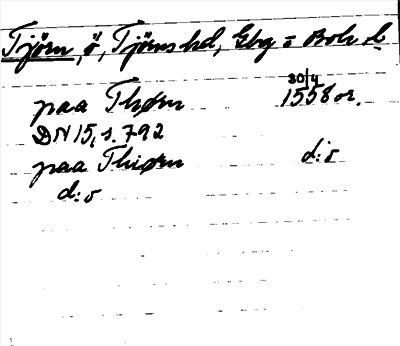 Tjörn, ö, Tjörns hd, Gbg o Boh l.
paa Thørn 30/4 1558 or.
DN 15, s. 792
paa Thiørn d:o
d:o